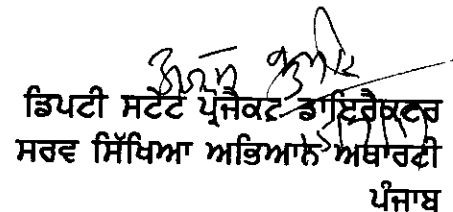 ਡਿਪਟੀ ਸਟੇਟ ਪ੍ਰੋਜੈਕਟ ਡਾਇਰੈਕਟਰ
ਸਰਵ ਸਿੱਖਿਆ ਅਭਿਆਨ ਅਥਾਰਟੀ
ਪੰਜਾਬ